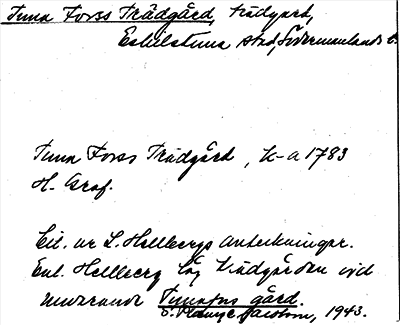 Tuna Forss Trädgård, trädgård,
Eskilstuna stad, Södermanlands l.
Tuna Forss Trädgård, K-a 1783
H. Graf.
Cit. ur L. Hellbergs anteckningar.
Enl. Hellberg låg trädgården vid
nuvarande Tunafors gård.
1943.